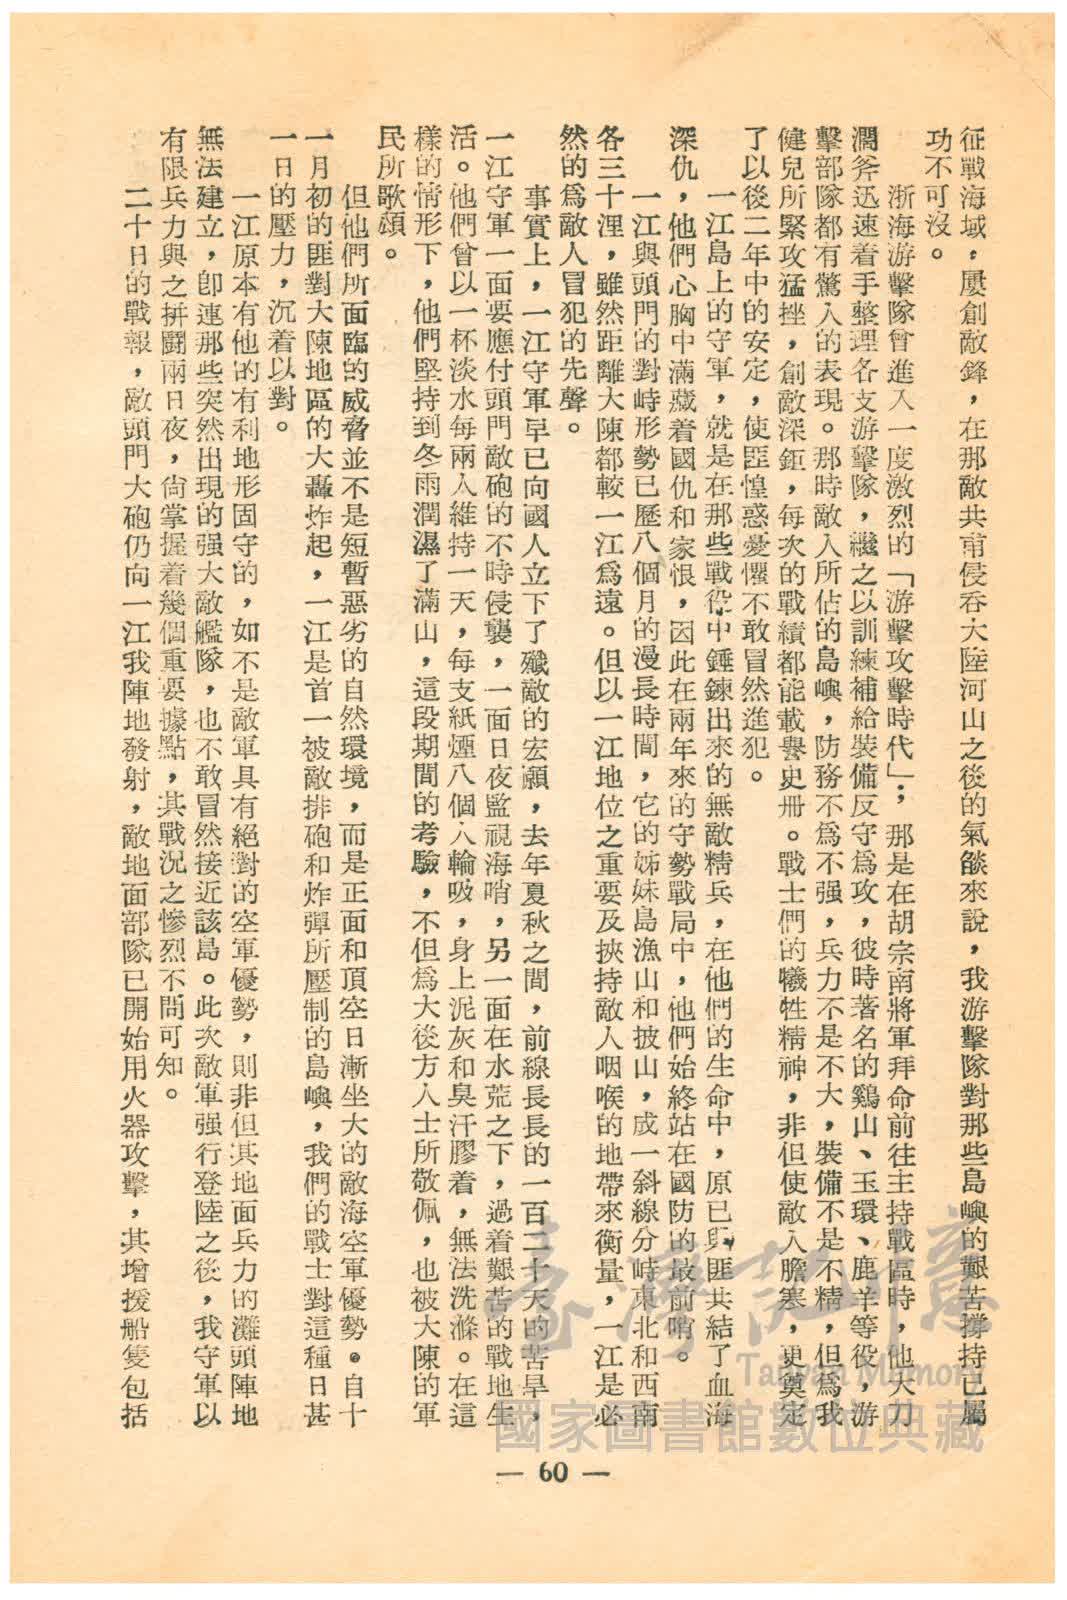 征戰海域，屢創敵鋒，在那敵共甫侵吞大陸河山之後的氣燄來說，我游擊隊對那些島嶼的艱苦撐持已屬
功不可沒。
浙海游擊隊曾進入一度激烈的「游擊攻擊時代」；那是在胡宗南將軍拜命前往主持戰區時，他大刀
濶斧迅速着手整理各支游擊隊，繼之以訓練補給裝備反守爲攻，彼時著名的鷄山、玉環、鹿羊等役，游
擊部隊都有驚人的表現。那時敵人所佔的島嶼，防務不爲不强，兵力不是不大，裝備不是不精，但爲我
健兒所緊攻猛挫，創敵深鉅，每次的戰績都能載譽史册。戰士們的犧牲精神，非但使敵人膽寒，更奠定
了以後二年中的安定，使匪惶惑憂懼不敢冒然進犯。
一江島上的守軍，就是在那些戰役中錘鍊出來的無敵精兵，在他們的生命中，原已與匪共結了血海
深仇，他們心胸中滿藏着國仇和家恨，因此在兩年來的守勢戰局中，他們始終站在國防的最前哨。
一江與頭門的對峙形勢已歷八個月的漫長時間，它的姊妹島漁山和披山，成一斜線分峙東北和西南
各三十浬，雖然距離大陳都較一江爲遠。但以一江地位之重要及挾持敵人咽喉的地帶來衡量，一江是必
然的爲敵人冒犯的先聲。
事實上，一江守軍早已向國人立下了殲敵的宏願，去年夏秋之間，前線長長的一百二十天的苦旱，
一江守軍一面要應付頭門敵砲的不時侵襲，一面日夜監視海哨，另一面在水荒之下，過着艱苦的戰地生
活。他們曾以一杯淡水每兩人維持一天，每支紙煙八個人輪吸，身上泥灰和臭汗膠着，無法洗滌。在這
樣的情形下，他們堅持到冬雨潤濕了滿山，這段期間的考驗，不但爲大後方人士所敬佩，也被大陳的軍
民所歌頌。
但他們所面臨的威脅並不是短暫惡劣的自然環境，而是正面和頂空日漸坐大的敵海空軍優勢。自十
一月初的匪對大陳地區的大轟炸起，一江是首一被敵排砲和炸彈所壓制的島嶼，我們的戰士對這種日甚
一日的壓力，沉着以對。
一江原本有他的有利地形固守的，如不是敵軍具有絕對的空軍優勢，則非但其地面兵力的灘頭陣地
無法建立，卽連那些突然出現的强大敵艦隊，也不敢冒然接近該島。此次敵軍强行登陸之後，我守軍以
有限兵力與之拼鬪兩日夜，尙掌握着幾個重要據點，其戰況之慘烈不問可知。
二十日的戰報，敵頭門大砲仍向一江我陣地發射，敵地面部隊已開始用火器攻擊，其增援船隻包括
— 60 —
臺灣記憶
Taiwan Memory
國家圖書館數位典藏